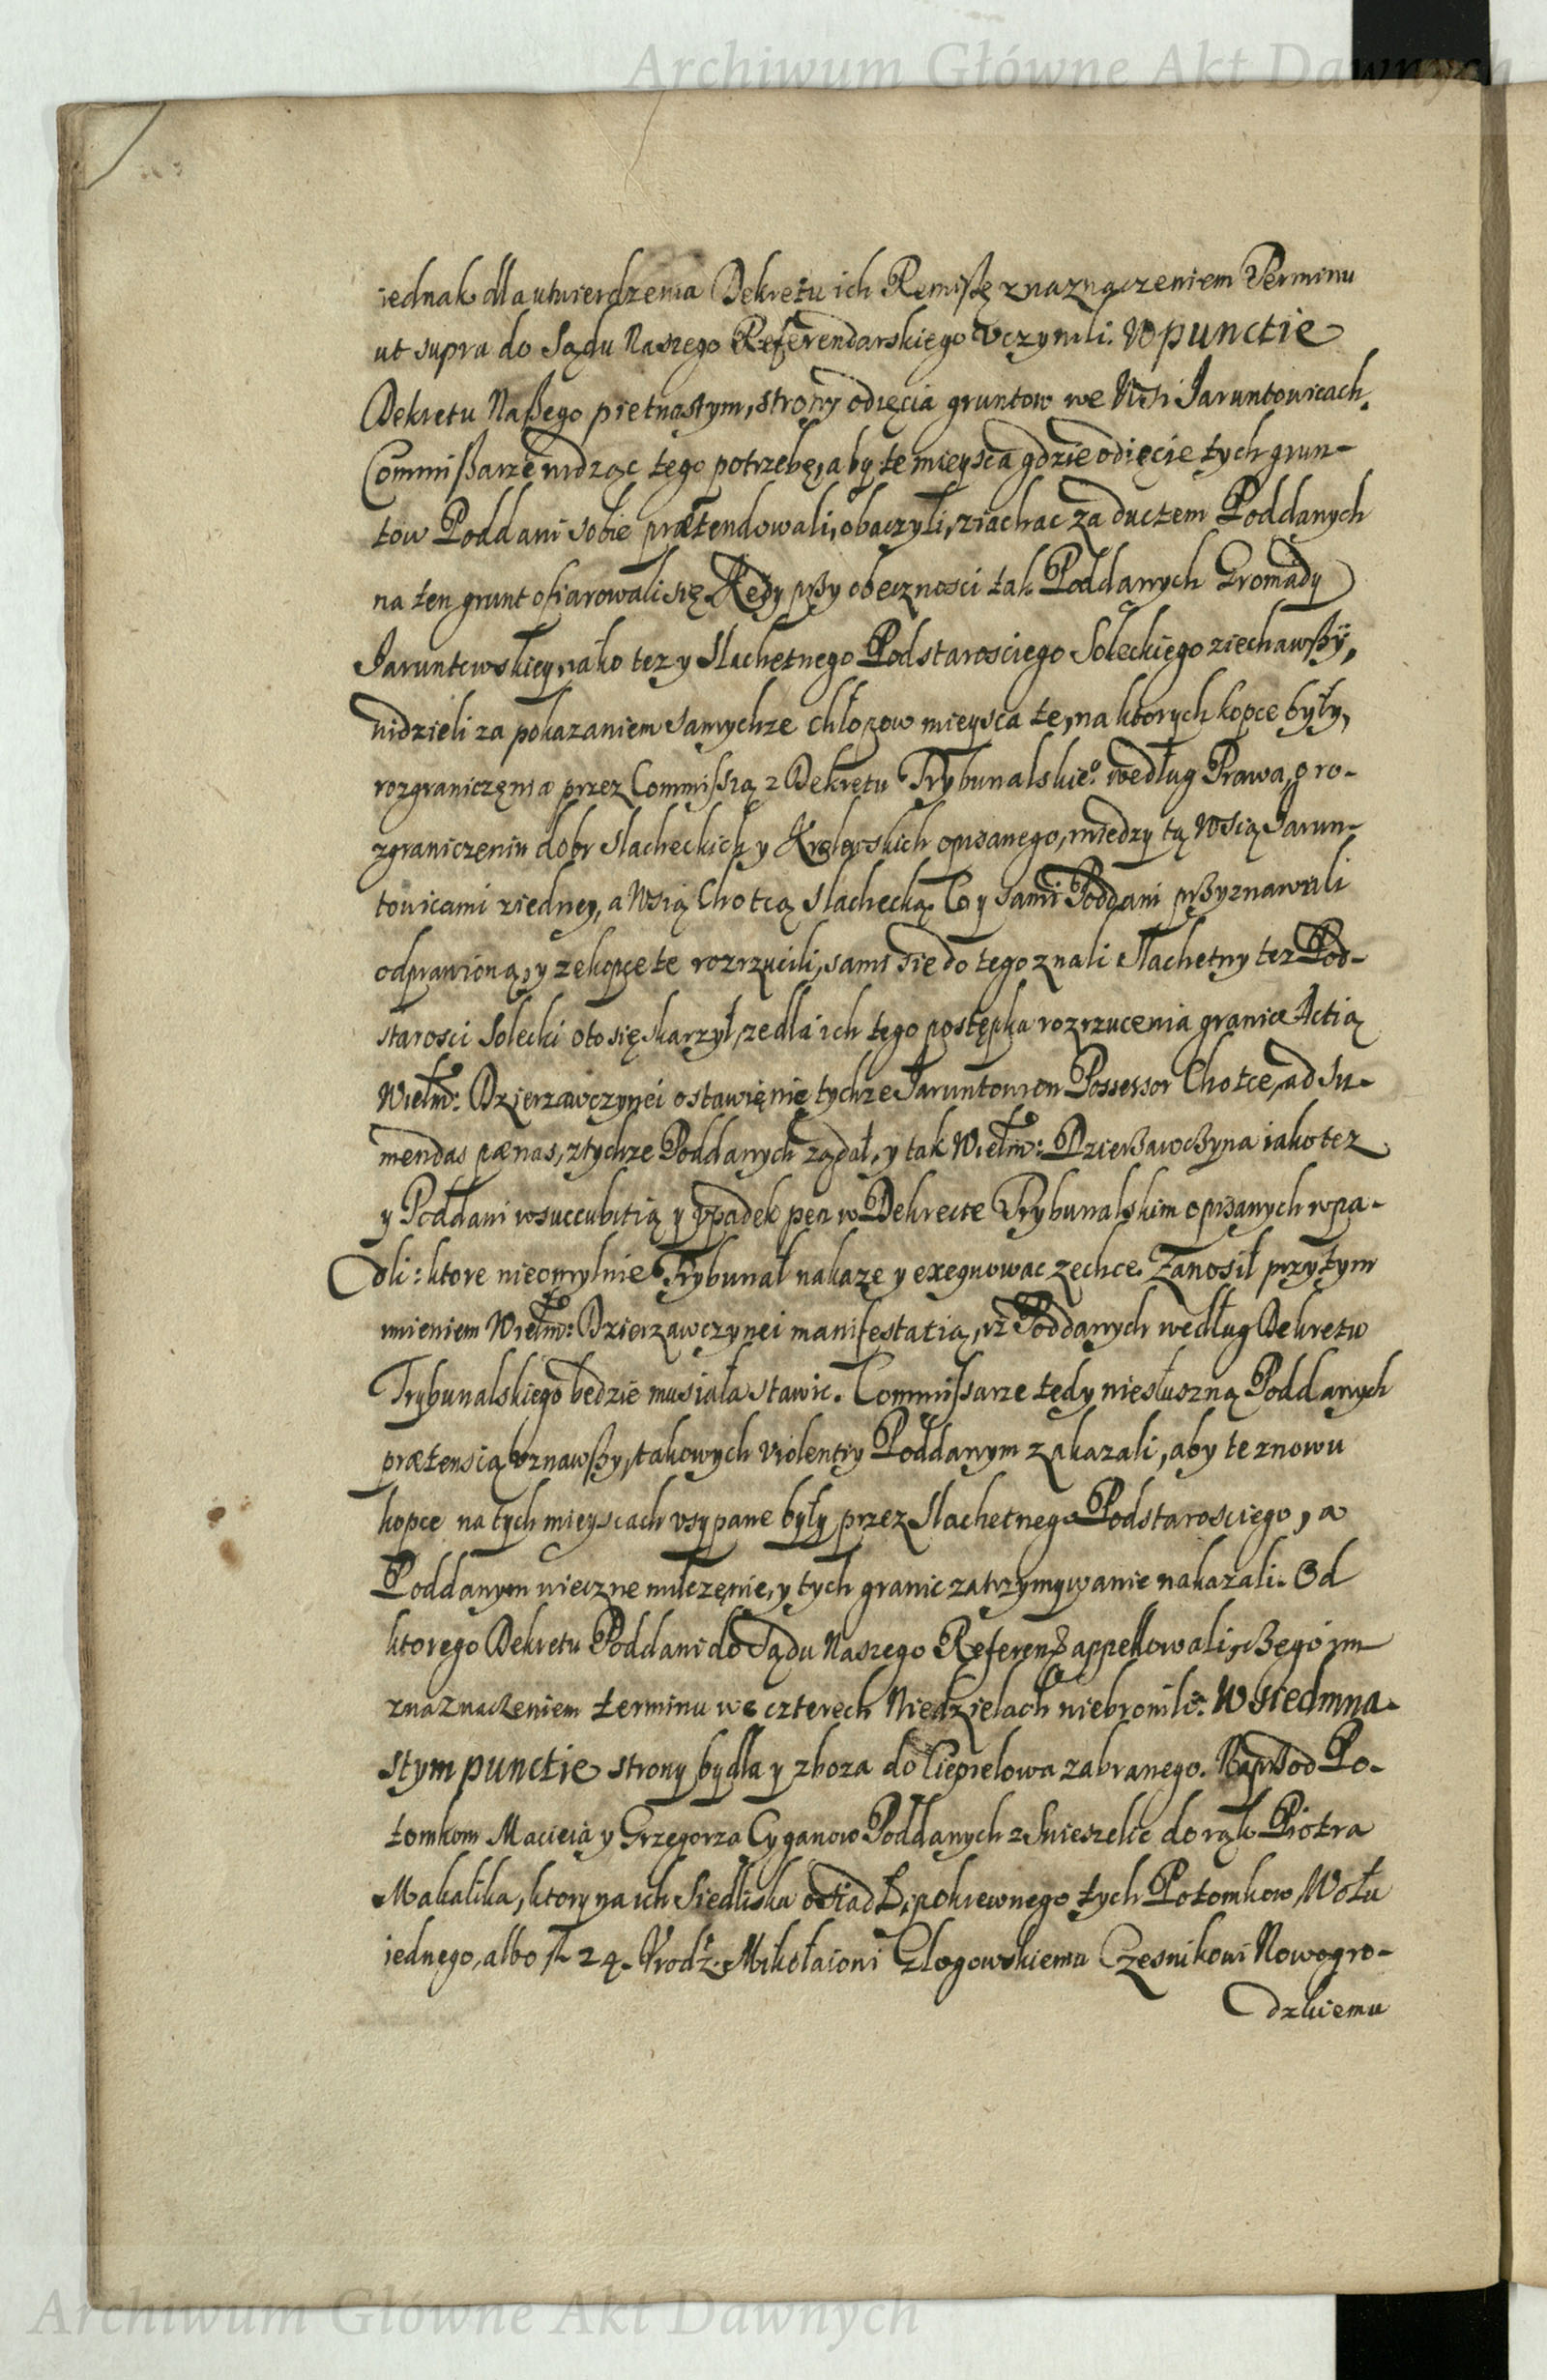 Archiwum Główne Akt Dawnych
iednak dla utwierdzenia Dekretu ich Remissę z naznaczeniem Terminu
ut supra do Sądu Naszego Referendarskiego vczynili. W punctie
Dekretu Naßego pietnastym, strony odięcia gruntow we Wsi Jaruntowicach.
Commißarze widząc tego potrzebę, aby te mieysca gdzie odięcie tych grun-
tow Poddani sobie prætendowali, obaczyli, ziachac za ductem Poddanych
na ten grunt ofiarowali się. Kędy pßy obecznosci tak Poddanych Gromady
Jaruntowskiey, iako tez y Slachetnego Podstarosciego Soleckiego ziechawßy,
widzieli za pokazaniem samychze chłopow mieysca te, na ktorych kopce były,
rozgraniczęnia przez Commissią z Dekretu Trybunalskieº według Prawa, o ro-
zgraniczeniu dobr slacheckich y Krolewskich opisanego, miedzy tą Wsią Jarun-
towicami ziedney, a Wsią Chotcą slachecką. Co y sami Poddani pßyznawali
odprawioną, y ze kopce te rozrzucili, sami sie do tego znali. Slachetny tez Pod-
starosci Solecki oto się skarzył, ze dla ich tego postępku rozrzucenia granic Actią
Wielmº: Dzierzawczynei o stawięnie tychze Jaruntowian Possessor Chotce, ad su-
mendas pænas, z tychze Poddanych ządał, y tak Wielmº: Dzierßawcßyna iako tez
y Poddani w succubitią y vpadek pen w Dekrecie Trybunalskim opisanych wpa-
dli: ktore nieomylnie Trybunał nakaze y exequowac zechce. Zanosił przytym
imieniem Wielmº: Dzierzawczynei manifestatią, iz Poddanych według Dekretu
Trybunalskiego będzie musiała stawic. Commissarze tędy niesłuszną Poddanych
prætensią vznawßy, takowych violentiy Poddanym zakazali, aby te znowu
kopce na tych mieyscach vsypane były przez Slachetnego Podstarosciego, a
Poddanym wieczne milczęnie, y tych granic zatrzymywanie nakazali. Od
ktorego Dekretu Poddani do Sądu Naszego Referen. appellowali, cßego im
z naznaczeniem terminu we czterech Niedzielach niebronili. W siedmna-
stym punctie strony bydła y zboza do Ciepielowa zabranego. Naprßod Po-
tomkom Macieia y Grzegorza Cyganow Poddanych z Swieszelic do rąk Piotra
Makalika, ktory na ich Siedlisku osiadł, pokrewnego tych Potomkow, Wołu
iednego, albo fl. 24. Vrodz. Mikołaiowi Głogowskiemu Czesnikowi Nowogro-
dzkiemu
Archiwum Główne Akt Dawnych